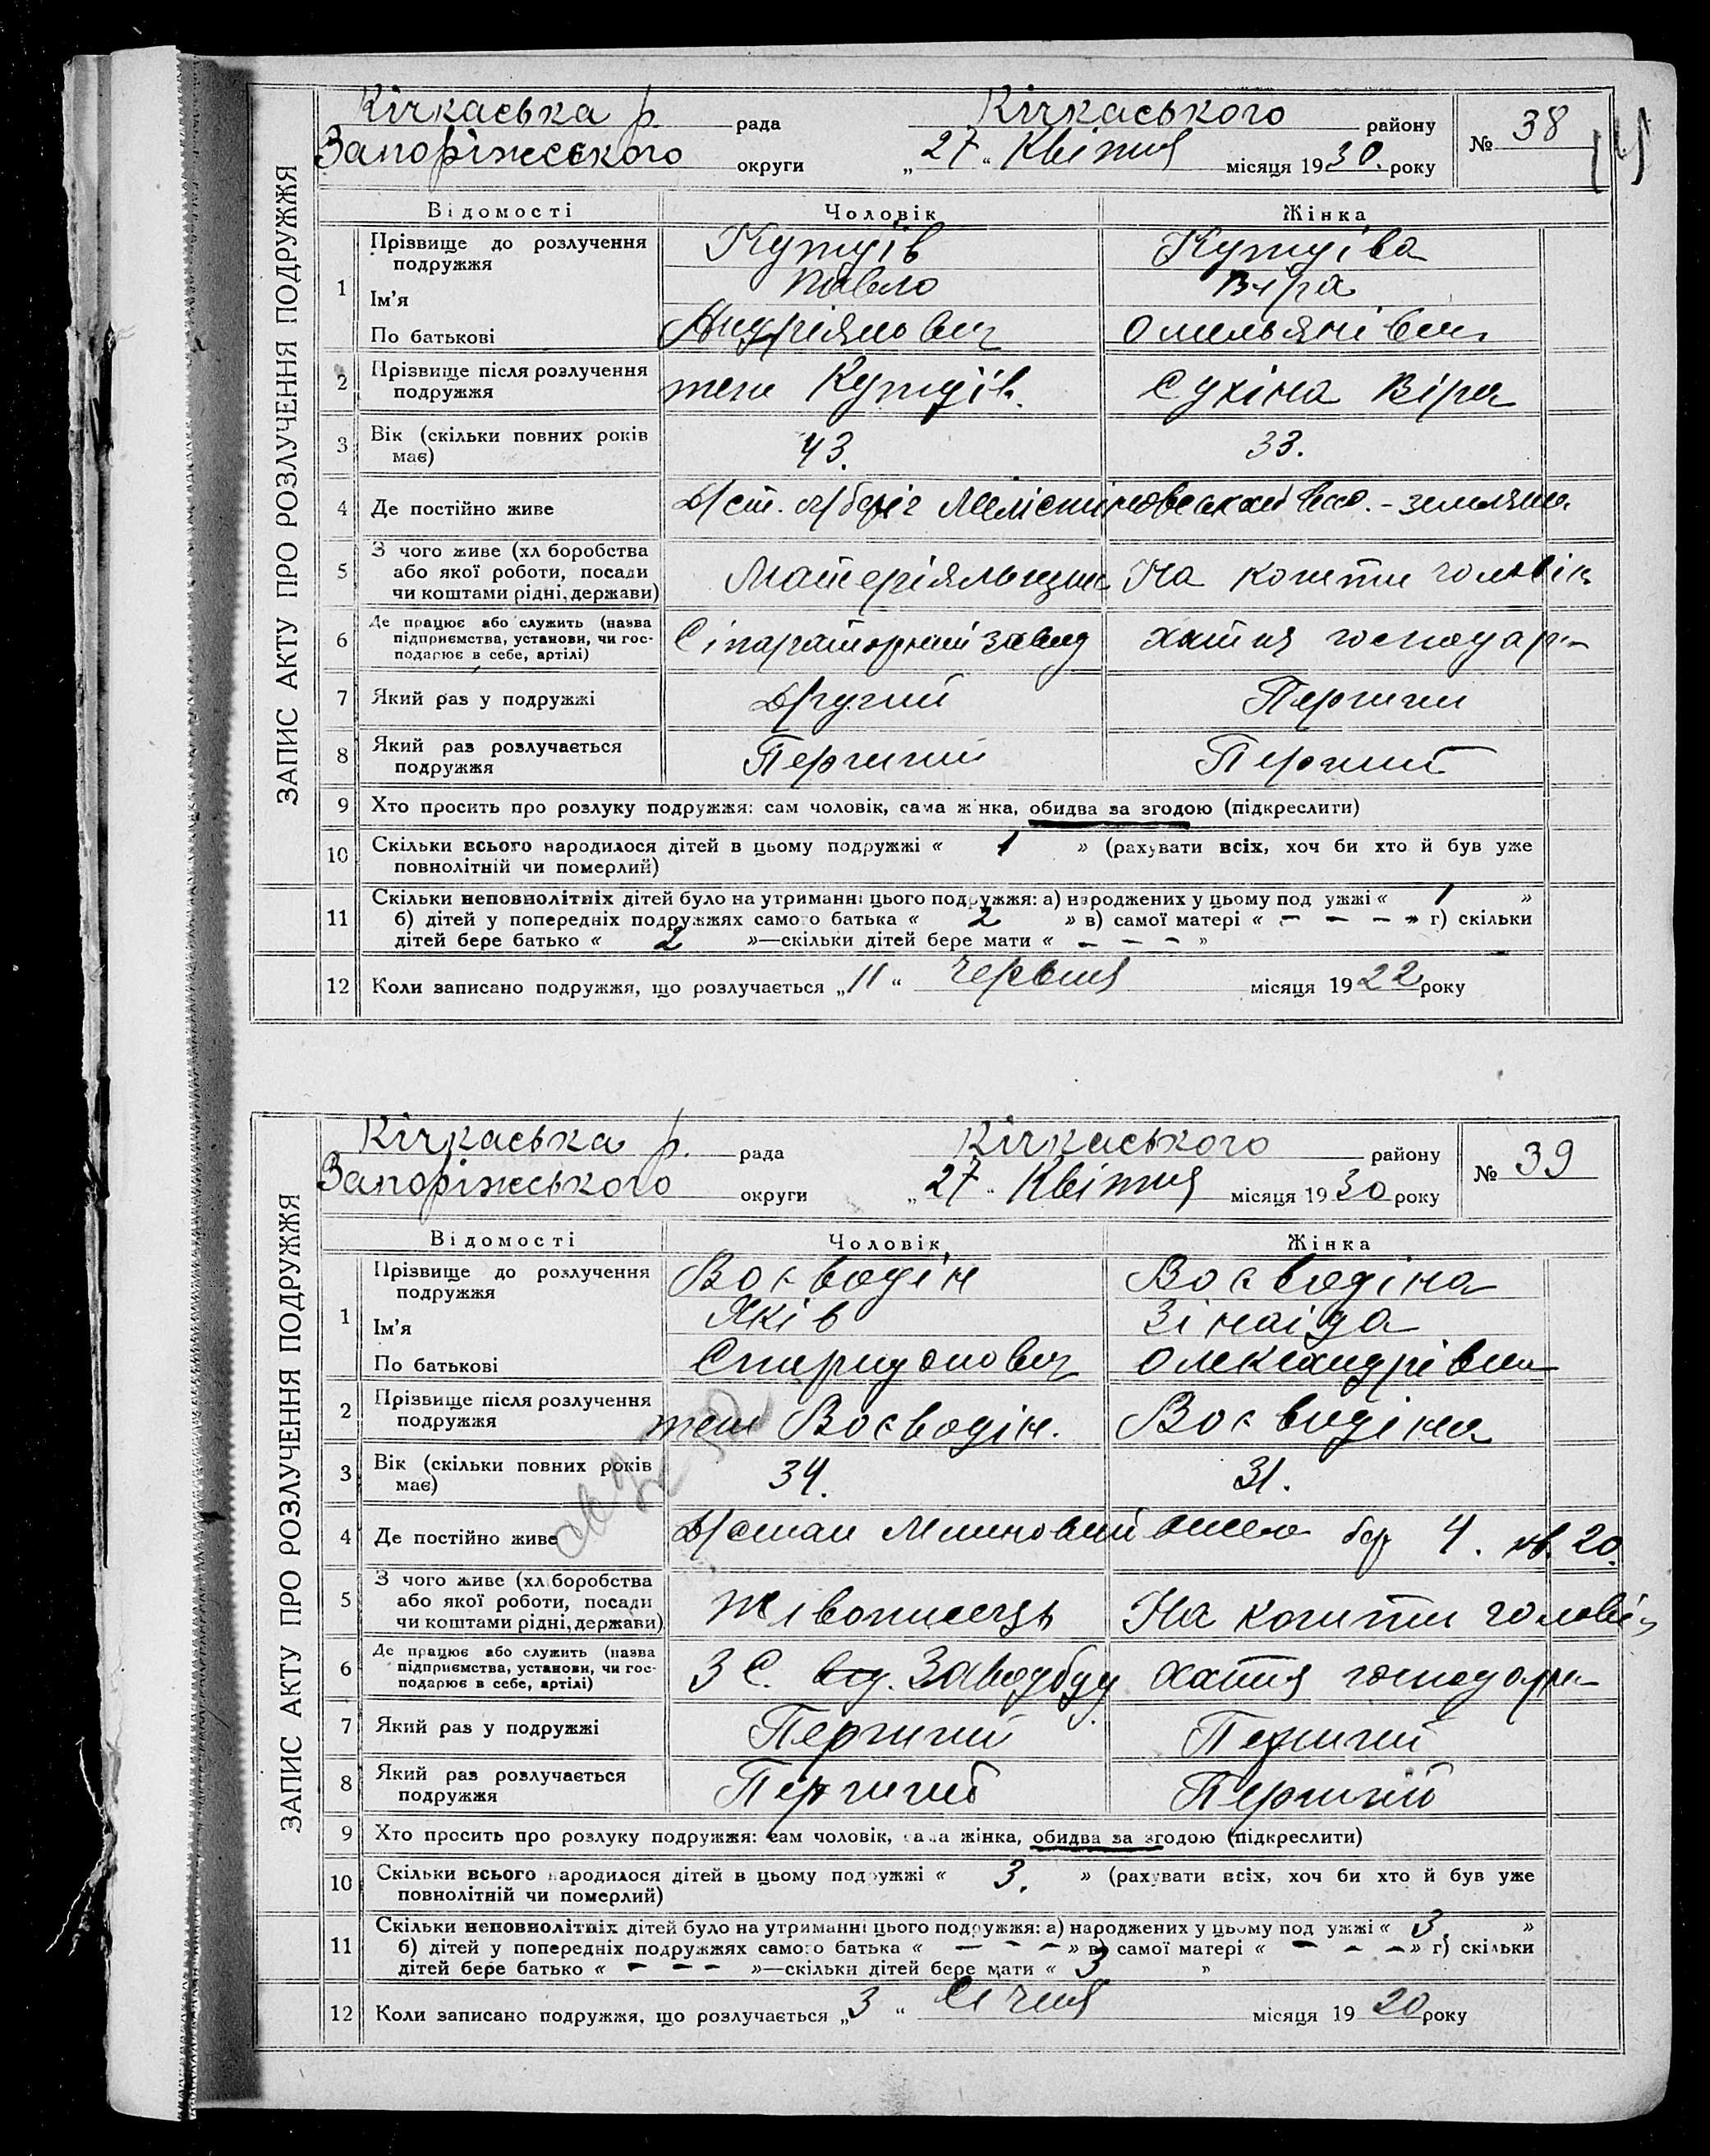 ЗАПИС АКТУ ПРО РОЗЛУЧЕННЯ ПОДРУЖЖЯ
Кічкаська р. рада Кічкаського району № 38
Запоріжського округи „27“ Квітня місяця 1930. року
Відомості Чоловік Жінка
1 Прізвище до розлучення подружжя Кутуів Кутуіва
Ім'я Павло Віра
По батькові Андріянович Омельянівна
2 Прізвище після розлучення подружжя теж Кутуів. Сухіна Віра
3 Вік (скільки повних років має) 43. 33.
4 Де постійно живе
5 З чого живе (хліборобства або якої роботи, посади чи коштами рідні, держави) На кошти чоловік
6 Де працює або служить (назва підприємства, установи, чи господарює в себе, артілі) завод хатня господар
7 Який раз у подружжі Другий Перший
8 Який раз розлучається подружжя Перший Перший
9 Хто просить про розлуку подружжя: сам чоловік, сама жінка, обидва за згодою (підкреслити)
10 Скільки всього народилося дітей в цьому подружжі « 1 » (рахувати всіх, хоч би хто й був уже
повнолітній чи померлий)
11 Скільки неповнолітніх дітей було на утриманні цього подружжя: а) народжених у цьому подружжі « 1 »
б) дітей у попередніх подружжях самого батька « 2 » в) самої матері « – – – » г) скільки
дітей бере батько « 2 »—скільки дітей бере мати « – – – »
12 Коли записано подружжя, що розлучається „11“ Червня місяця 1922 року
ЗАПИС АКТУ ПРО РОЗЛУЧЕННЯ ПОДРУЖЖЯ
Кічкаська р. рада Кічкаського району № 39
Запоріжського округи „27“ Квітня місяця 1930 року
Відомості Чоловік Жінка
1 Прізвище до розлучення подружжя Воєводін Воєводіна
Ім'я Яків Зінаіда
По батькові Спиридонович Олександрівна
2 Прізвище після розлучення подружжя теж Воєводін. Воєводіна
3 Вік (скільки повних років має) 34. 31.
4 Де постійно живе 4. кв. 20.
5 З чого живе (хліборобства або якої роботи, посади чи коштами рідні, держави) Живописець На кошти чоловік
6 Де працює або служить (назва підприємства, установи, чи господарює в себе, артілі) хатня господар
7 Який раз у подружжі Перший Перший
8 Який раз розлучається подружжя Перший Перший
9 Хто просить про розлуку подружжя: сам чоловік, сама жінка, обидва за згодою (підкреслити)
10 Скільки всього народилося дітей в цьому подружжі « 3. » (рахувати всіх, хоч би хто й був уже
повнолітній чи померлий)
11 Скільки неповнолітніх дітей було на утриманні цього подружжя: а) народжених у цьому подружжі « 3. »
б) дітей у попередніх подружжях самого батька « – – – » в) самої матері « – – – » г) скільки
дітей бере батько « – – – »—скільки дітей бере мати « 3 »
12 Коли записано подружжя, що розлучається „3“ Січня місяця 1920 року